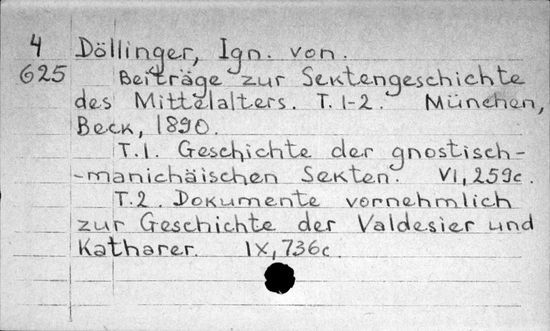 4 Döllinger, Ign. von.
625 Beiträge zur Sektengeschichte
des Mittelalters. T. 1-2. München,
Beck, 1890.
T.1. Geschichte der gnostisch-
-manichäischen Sekten. VI, 259c.
T.2. Dokumente vornehmlich
zur Geschichte der Valdesier und
Katharer. IX, 736c.